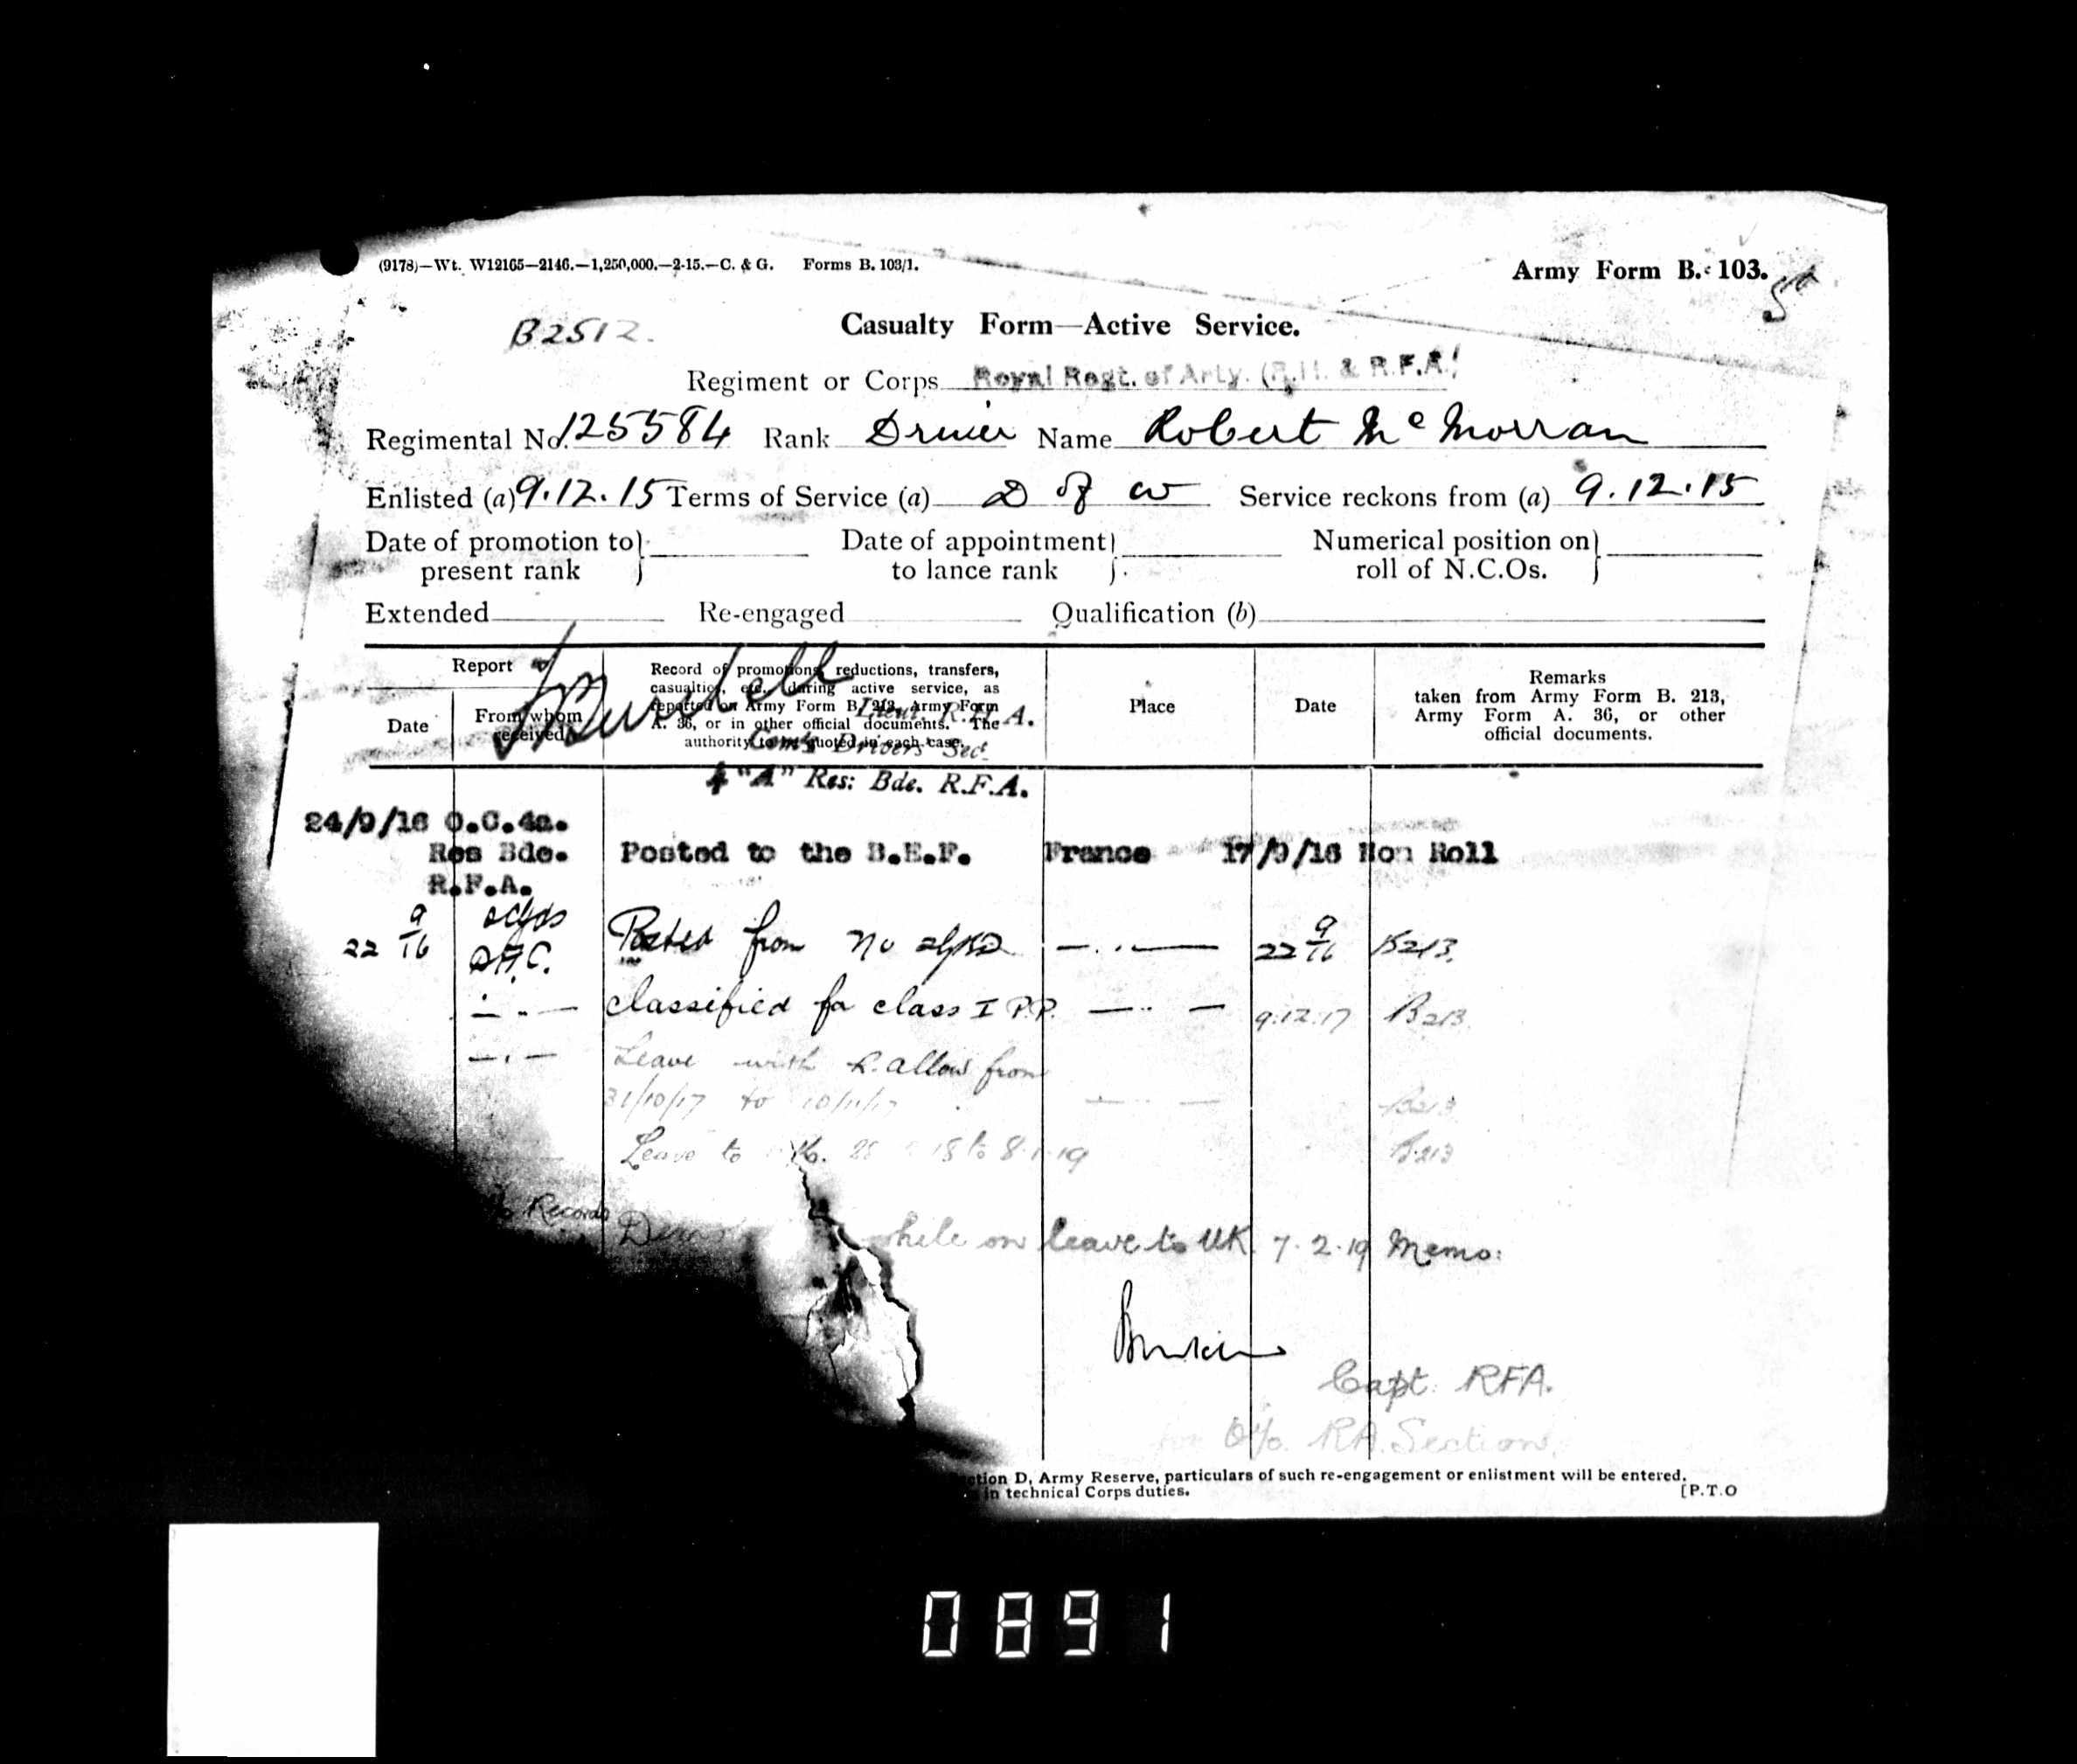 (9178)—Wt. W12165—2146.—1,250,000.—2-15.—C. & G. Forms B. 103/1.
Army Form B. 103.
B2512.
Casualty Form—Active Service.
Regiment or Corps Royal Regt. of Arty. (R.H. & R.F.A.)
Regimental No. 125584 Rank Driver Name Robert McMorran
Enlisted (a) 9.12.15 Terms of Service (a) D of W Service reckons from (a) 9.12.15
Date of promotion to present rank
Date of appointment to lance rank
Numerical position on roll of N.C.Os.
Extended Re-engaged Qualification (b)
Report
Date
From whom received
Record of promotions, reductions, transfers,
casualties, etc., during active service, as
reported on Army Form B. 213, Army Form
A. 36, or in other official documents. The
authority to be quoted in each case.
Place
Date
Remarks
taken from Army Form B. 213,
Army Form A. 36, or other
official documents.
Lieut. R.F.A.
Comg Drivers Sec.
4 "A" Res: Bde. R.F.A.
24/9/16 O.C.4a.
Res Bde. Posted to the B.E.F. France 17/9/16 Nom Roll
R.F.A.
22 9/16 D.A.C. Posted from No 2 — . . — 22 9/16 B213.
— . . — classified for class I P.P. — . . — 9.12.17 B213
— . — Leave with R. allow from
31/10/17 to 10/11/17 — . . — B213
Leave to 18 to 8.1.19 B213
Records
hile on leave to UK. 7.2.19 Memo:
Capt. RFA.
for O i/c. RA. Section.
ction D, Army Reserve, particulars of such re-engagement or enlistment will be entered.
in technical Corps duties.
[P.T.O
0891